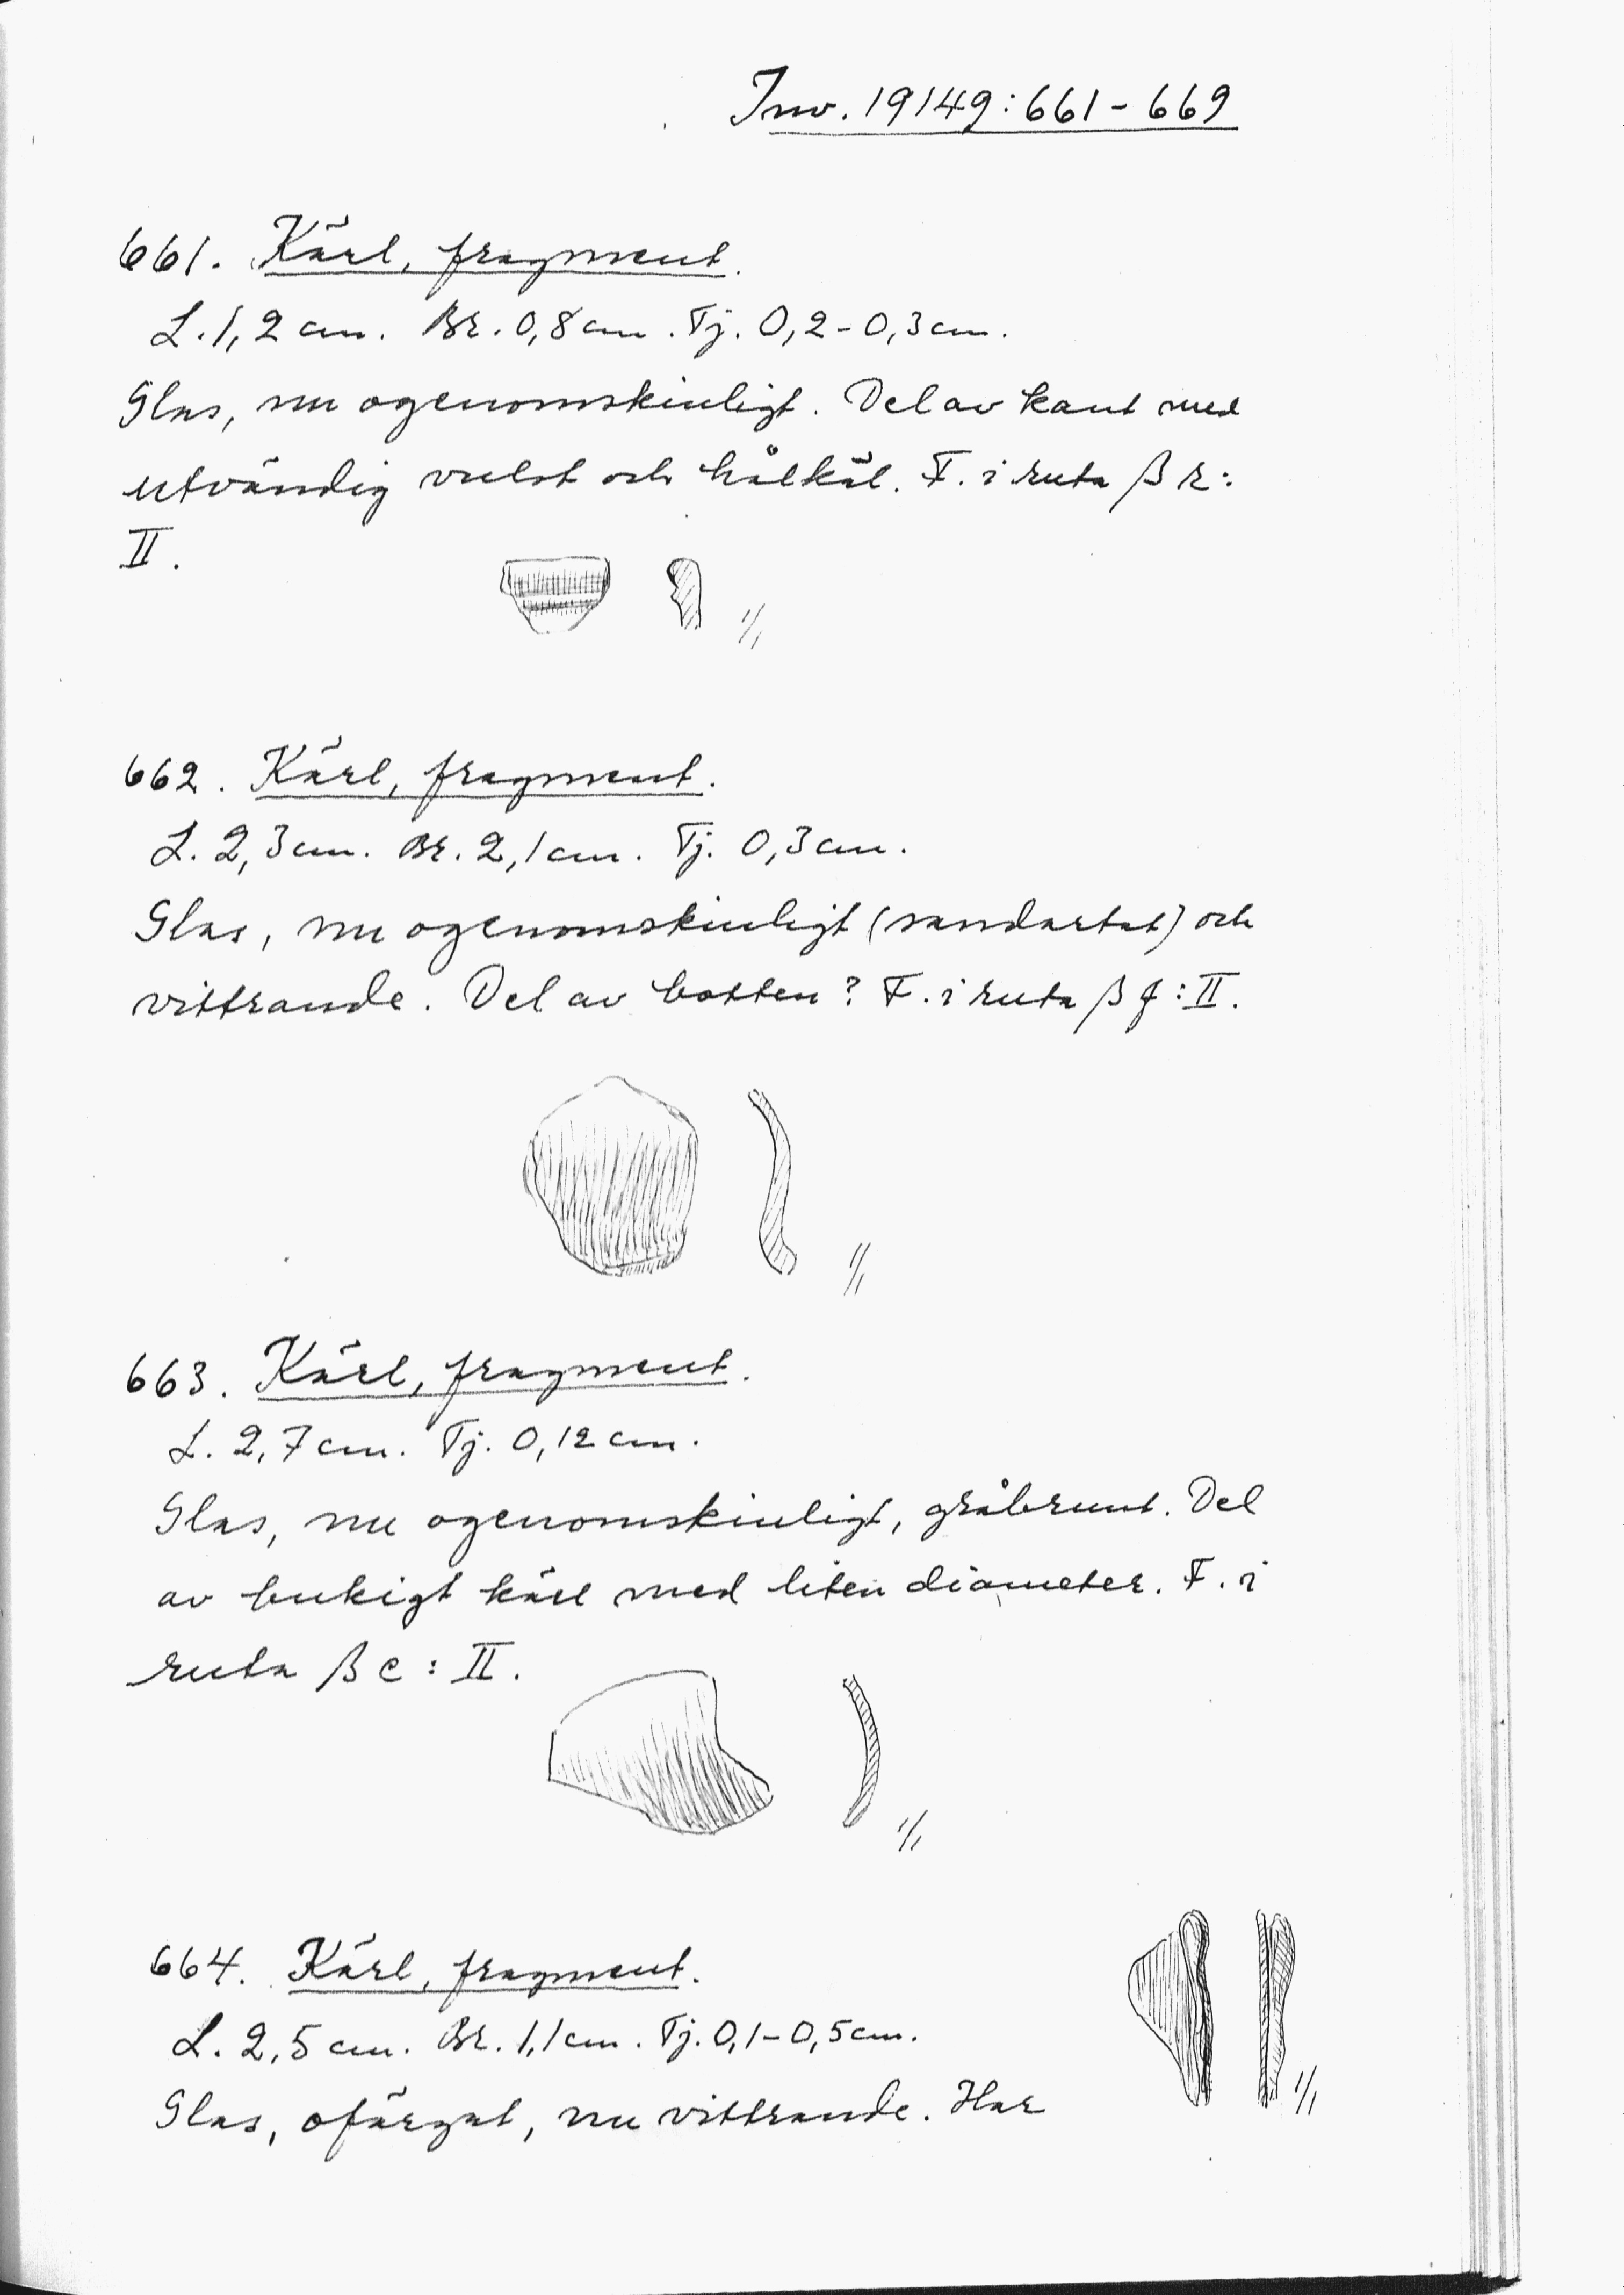 Inv. 19149:661-669
661. Kärl, fragment.
L. 1,2 cm. Br. 0,8 cm. Tj. 0,2-0,3 cm.
Glas, nu ogenomskinligt. Del av kant med
utvändig vulst och hålkäl. F. i ruta β r:
II.
1/1
662. Kärl, fragment.
L. 2,3 cm. Br. 2,1 cm. Tj. 0,3 cm.
Glas, nu ogenomskinligt (sandartat) och
vittrande. Del av botten? F. i ruta β f: II.
1/1
663. Kärl, fragment.
L. 2,7 cm. Tj. 0,12 cm.
Glas, nu ogenomskinligt, gråbrunt. Del
av bukigt kärl med liten diameter. F. i
ruta β c: II.
1/1
664. Kärl, fragment.
L. 2,5 cm. Br. 1,1 cm. Tj. 0,1-0,5 cm.
Glas, ofärgat, nu vittrande. Har
1/1